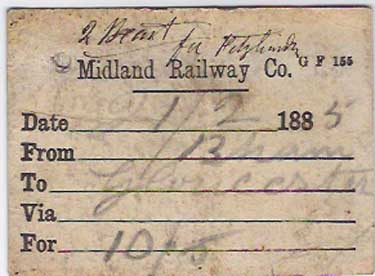 2 Beast
for
Midland Railway Co. G F 155
Date 1/2 1885
From B'ham
To Gloucester
Via
For 10/5